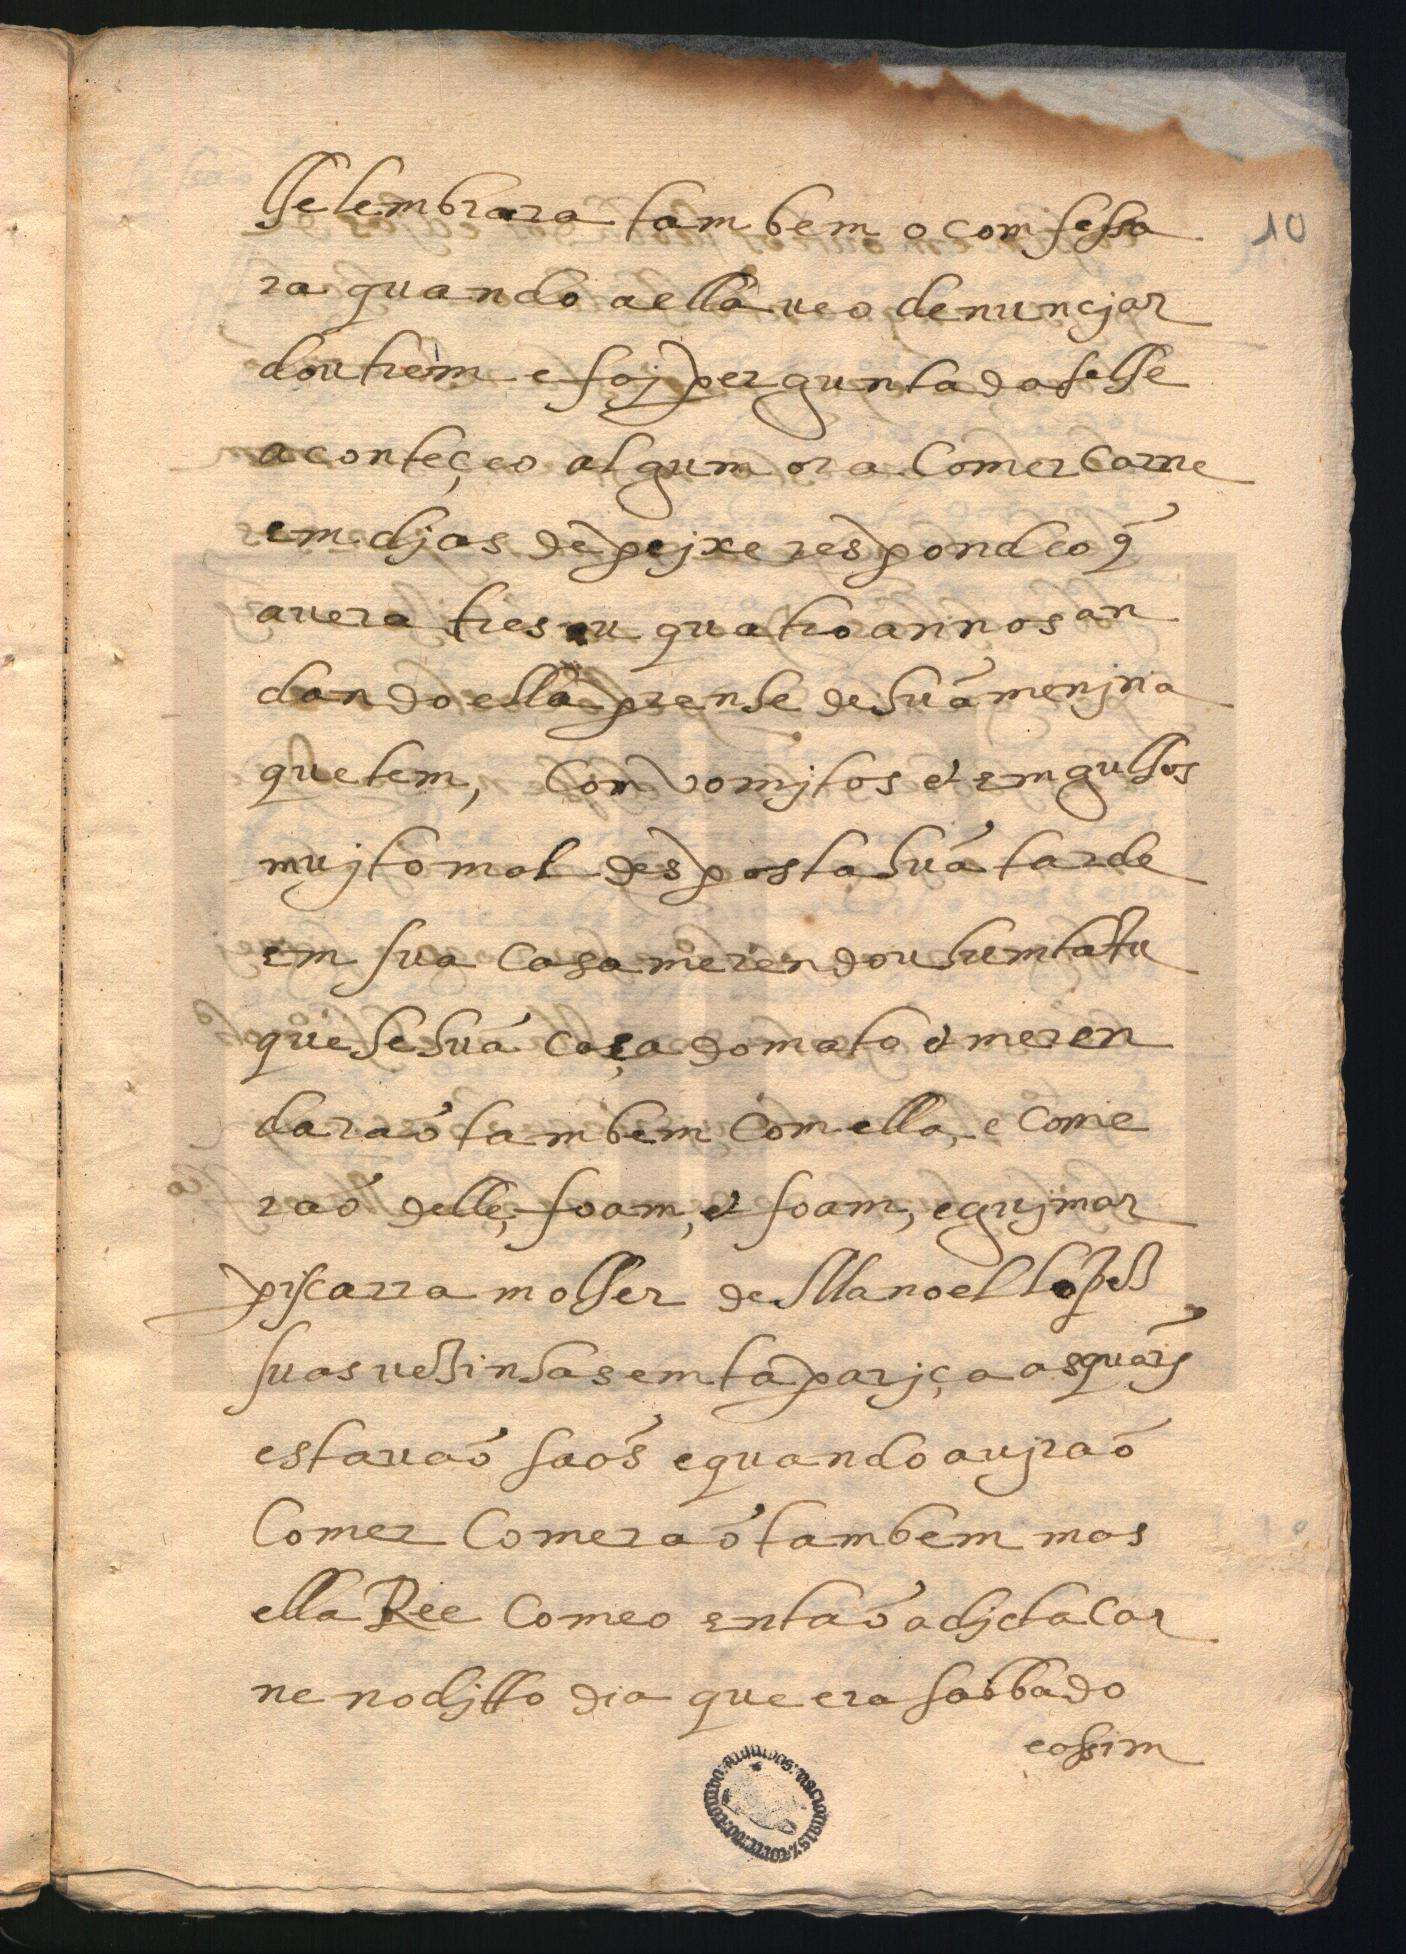 lhe lembrara tambem o comfessa
10
ra quando a ella ueo denunçiar
doutrem e foj perguntada se lhe
aconteçeo algum ora Comer Carne
em djas de pejxe respondeo q̃
auera tres ou quatro annos an
dando ella prenhe de huã menjna
que tem, Com vomjtos et emgulhos
mujto mal desposta huã tarde
em sua Casa merendou hum tatu
que he huã caça do mato et meren
daraõ tambem Com ella, e Come
raõ delle, foam, et foam, e gujmar
piscarra molher de Manoel lopeß
suas ueßinhas em taparjça as quais
estauaõ saõs e quando a ujraõ
Comer Comeraõ tambem mas
ella Ree Comeo entaõ a djcta Car
ne no djtto dia que era sabbado
e assim